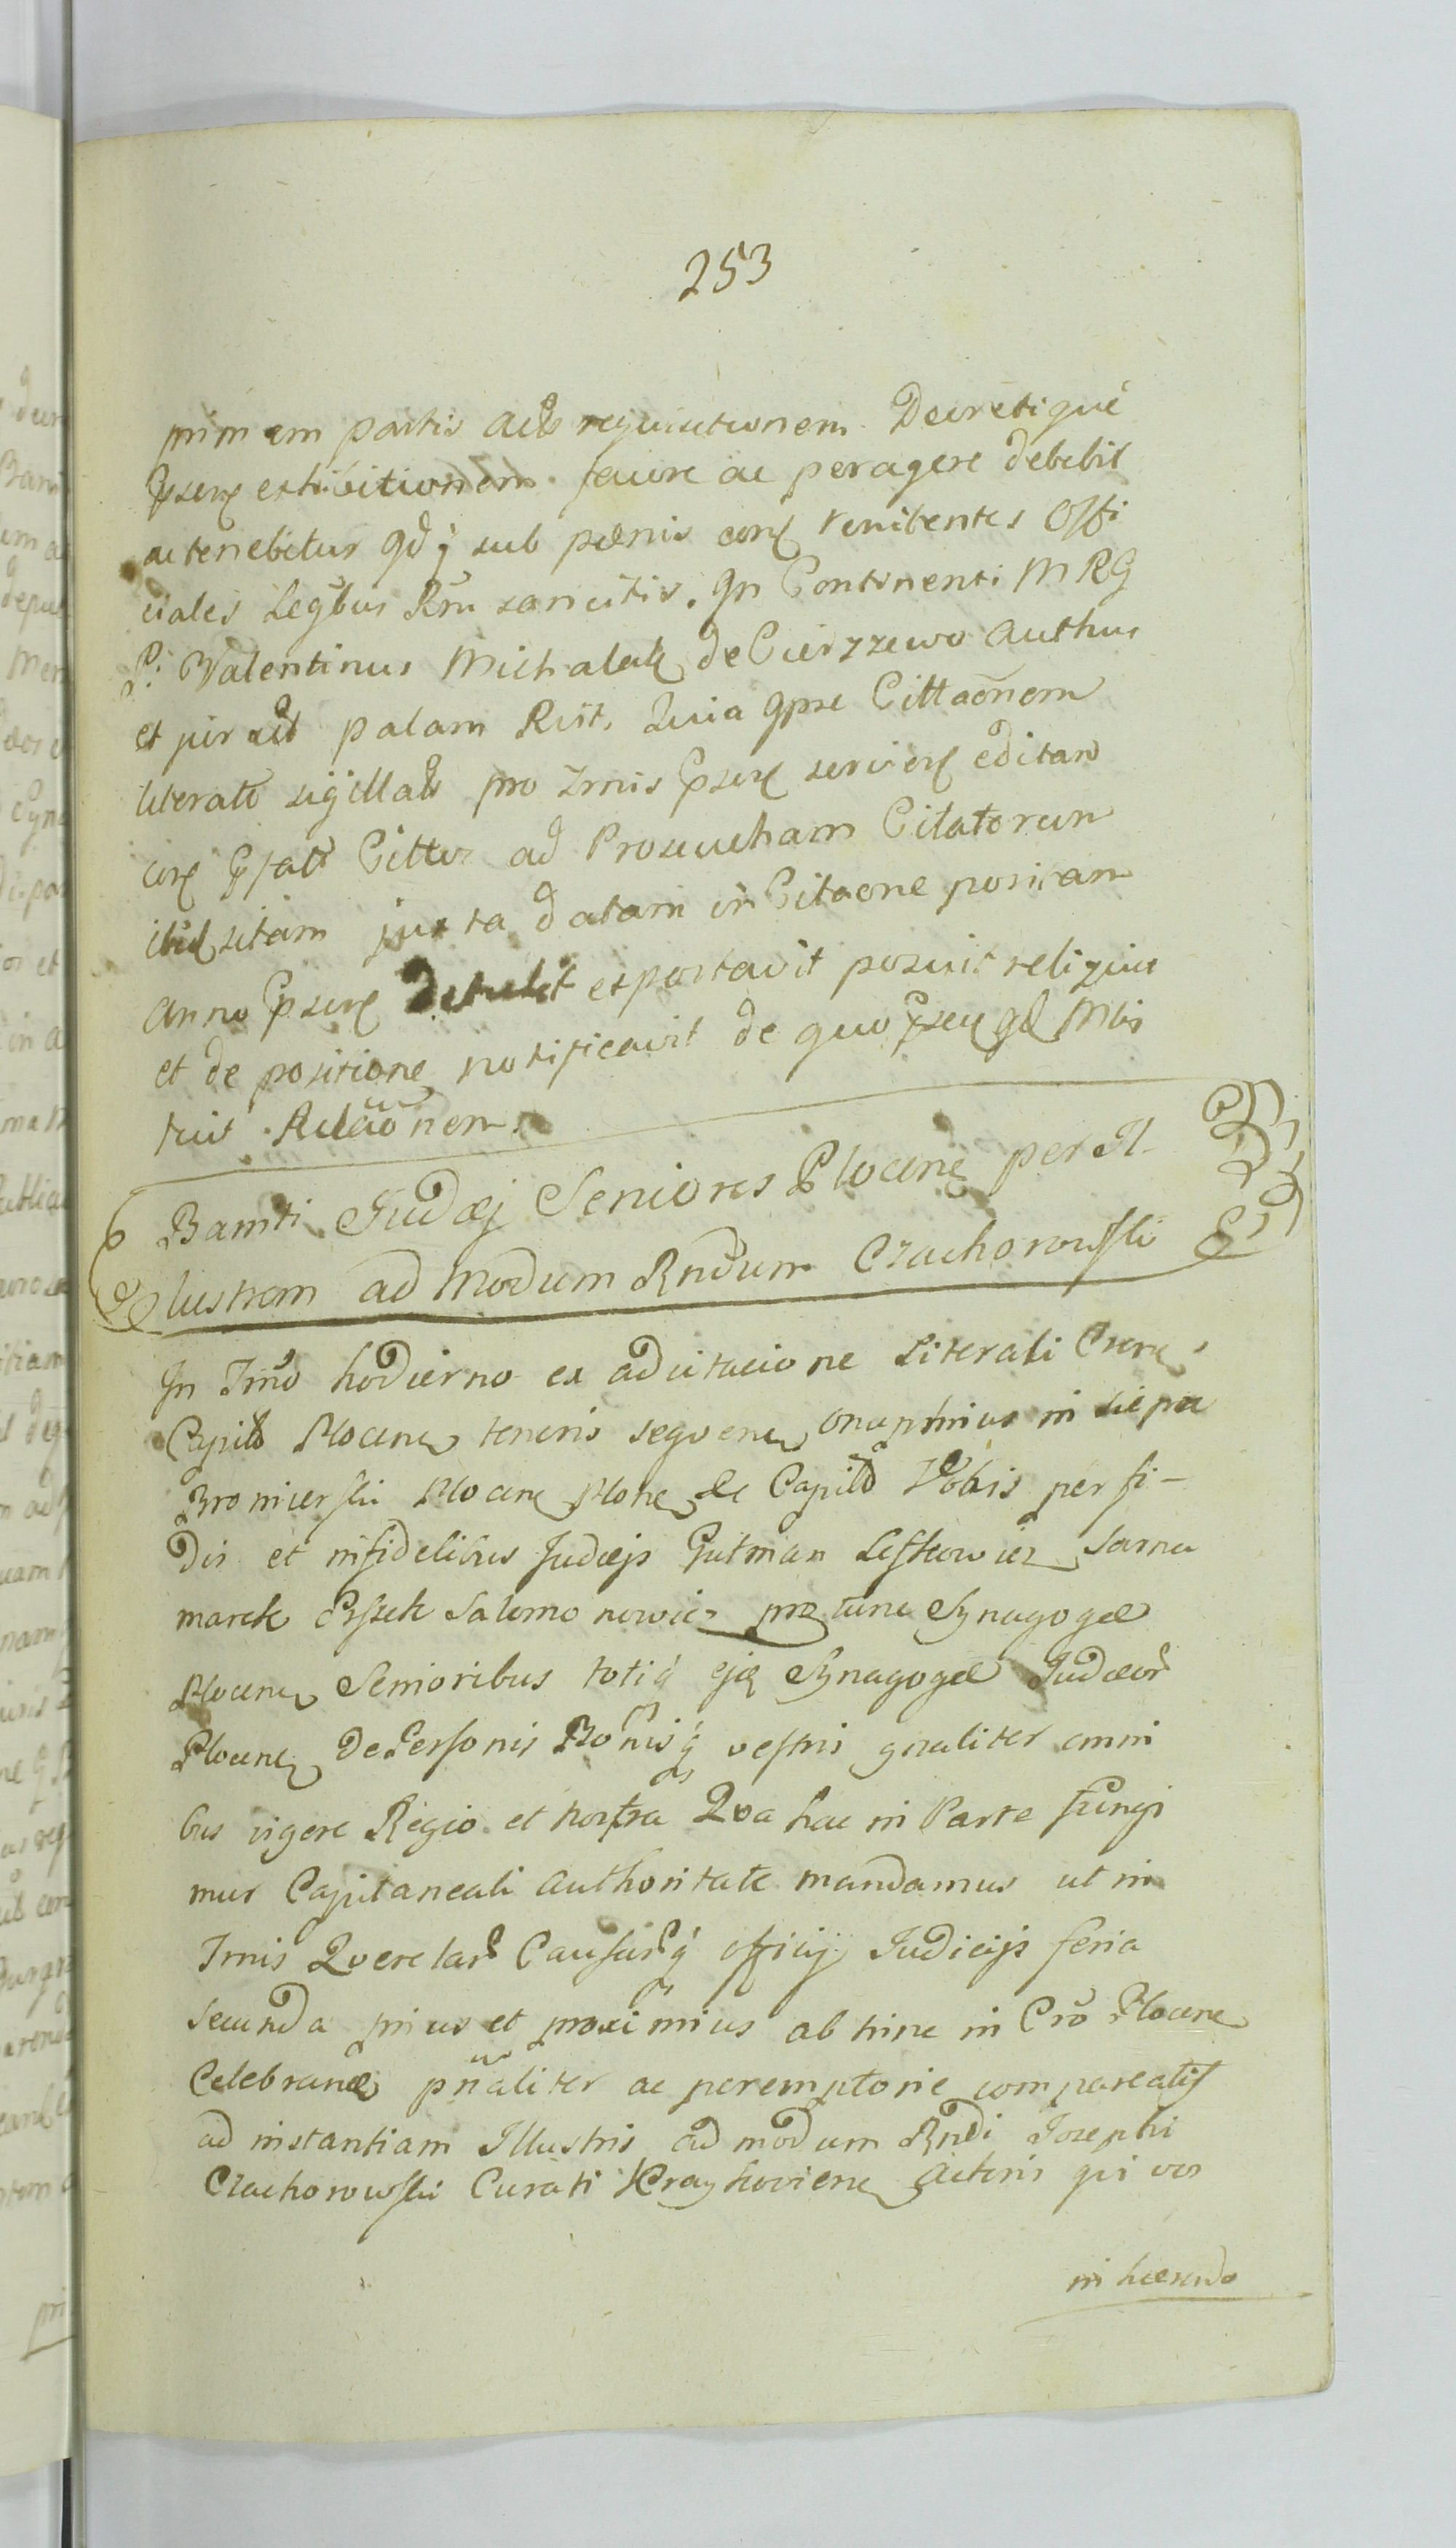 253
primam partis actoreae requisitionem Decretique
Psens exhibitionem facere ac peragere debebit
ac tenebitur qdq sub pœnis cont renitentes Offi
ciales Legibus Rni sancitis. In Continenti MRG
P: Valentinus Michalak de Cierszewo authus
et jurat palam Rvit. Quia ipse Cittaõnem
literalẽ sigillatã pro Tmis Psens servien editam
ibid sitam juxta datam in Citãone positam
anno Psens Detulit exportavit posuit reliquit
et de positione notificavit de quo Psens
fuit Relaõnem.
Bamti Judæj Seniores Plocens per Il
lustrem ad modum Rndum Czachorowski
In Tmõ hodierno ex adcitacione Literali
Capitli Plocens tenoris sequens Onuphrius in Siepce
Bromierski Plocens Plons & Capits Vobis perfi-
dis et infidelibus Judæjs Gutman Lefkowicz Sarna
marek Erszek Salomonowicz pro tunc Synagogæ
Plocens Senioribus totiq ejq Synagogæ Judæor
Plocens De Personis Bonisq vestris gnaliter omni
bus vigore Regio et nostra Qva hac in Parte fungi
mur Capitaneali Authoritate mandamus ut in
Tmis Qverelar Causarq officij Judicijs feria
secunda prius et proximius ab hinc in Crõ Plocens
Celebrand pnaliter ac peremptorie compareatis
ad instantiam Illustris ad modum Rndi Josephi
Czachorowski Curati Krayhoviens Actoris qvi vos
inhærendo